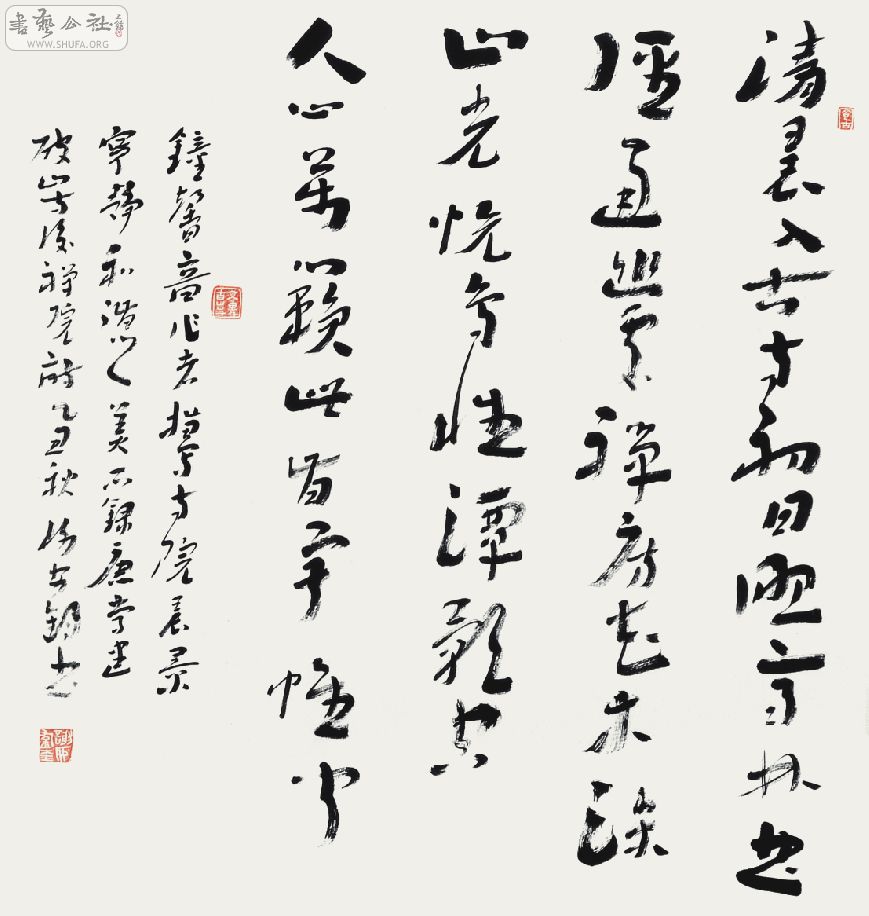 書藝公社
WWW.SHUFA.ORG
清晨入古寺初日照高林曲
徑通幽處禪房花木深
山光悅鳥性潭影空
人心萬籟此皆寂惟聞
鐘磬音作者描寫寺院晨景
寧靜和諧之美右錄唐常建
破山寺後禪院詩乙丑秋書